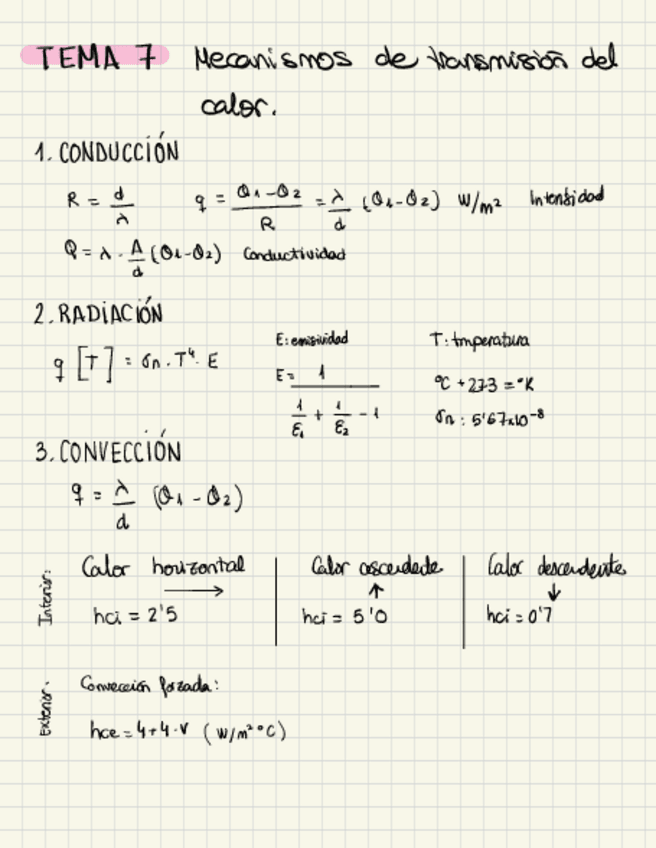 TEMA 7 Mecanismos de transmisión del
calor.
1. CONDUCCIÓN
R = d/λ q = (θ1-θ2)/R = λ/d (θ1-θ2) W/m² Intensidad
Q = λ · A/d (θ1-θ2) Conductividad
2. RADIACIÓN
E: emisividad T: tmperatura
q [T] = σn · T⁴ · E
E = 1/(1/ε1 + 1/ε2 - 1) °C + 273 = °K
σn : 5'67x10⁻⁸
3. CONVECCIÓN
q = λ/d (θ1 - θ2)
Interior:
Calor horizontal → hci = 2'5
Calor ascendede ↑ hci = 5'0
Calor descendente ↓ hci = 0'7
Exterior.
Convección forzada:
hce = 4+4·v (W/m²°C)